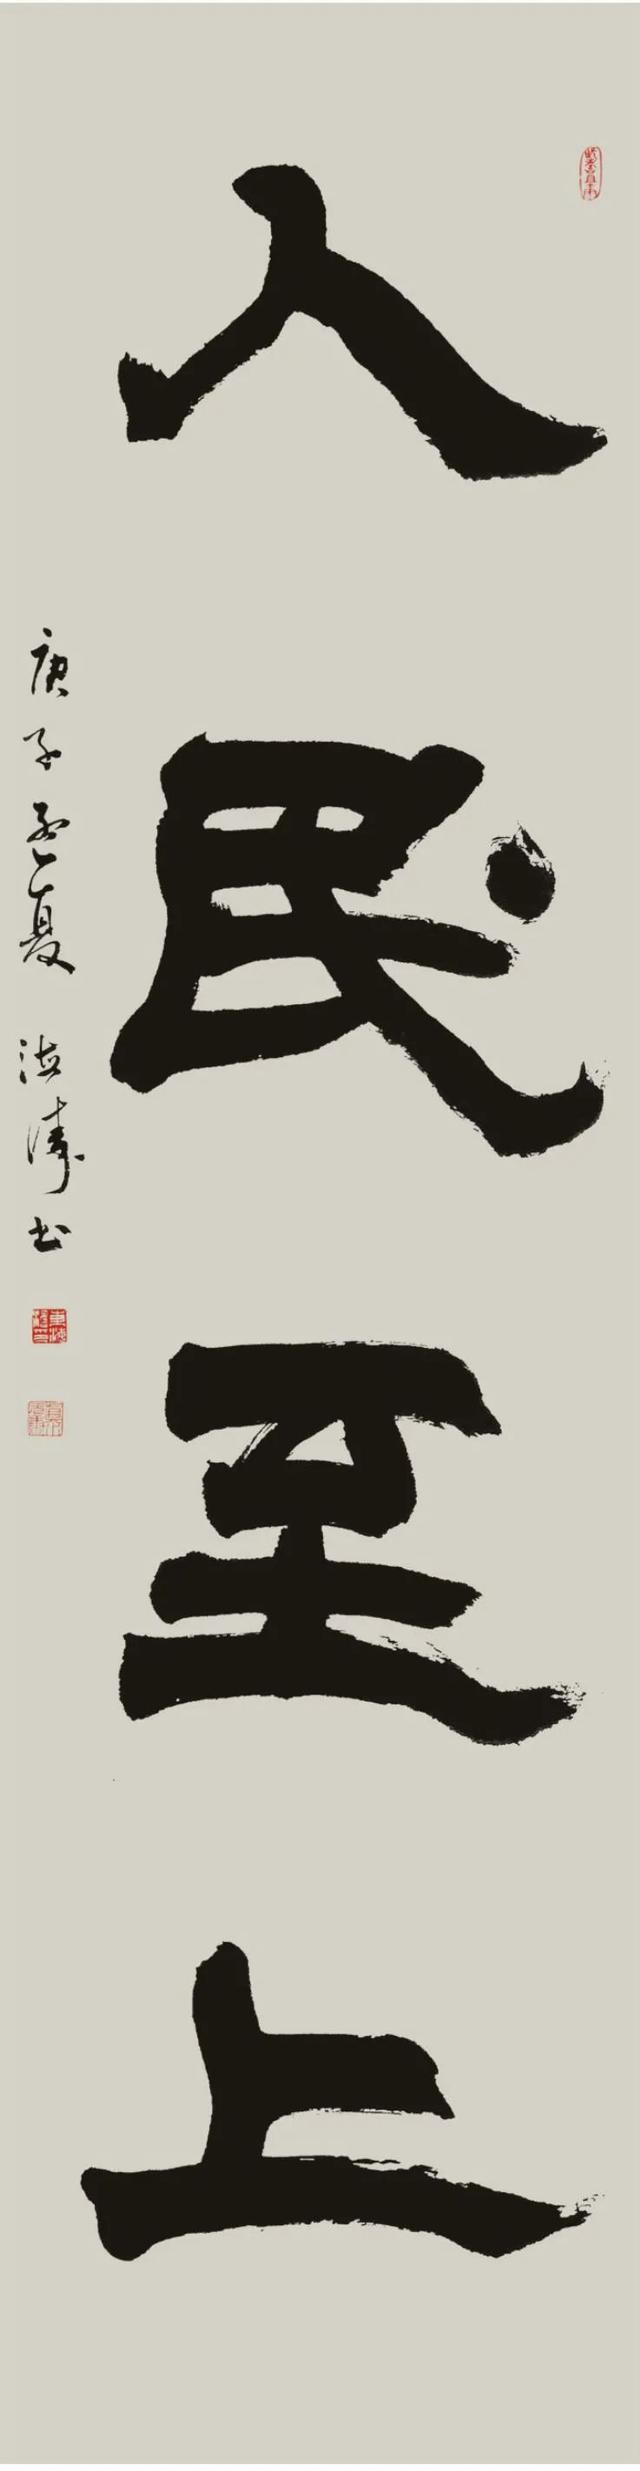 人民至上
庚子孟夏 海涛书